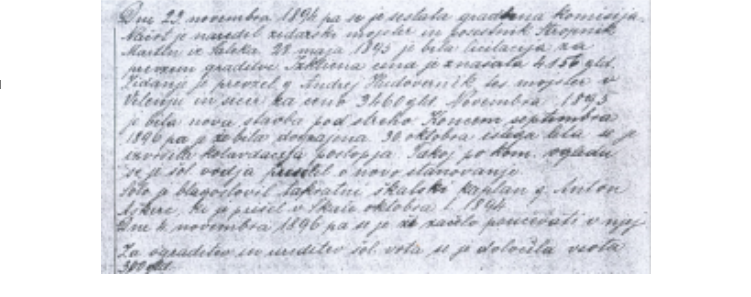 Dne 23. novembra 1894 pa se je sestala gradbena komisija.
Načrt je naredil zidarski mojster in posestnik Stropnik
Martin iz Šaleka. 28. maja 1895 je bila licitacija za
prevzem graditve. Izklicna cena je znašala 4156 gld.
Zidanje je prevzel g. Andrej Hudovernik, tes. mojster v
Velenju in sicer za ceno 3460 gld. Novembra 1895
je bila nova stavba pod streho. Koncem septembra
1896 pa je že bila dograjena. 30. oktobra istega leta se je
izvršila kolavdacija poslopja. Takoj po kom. ogledu
se je šol. vodja preselil v novo stanovanje.
Šolo je blagoslovil takratni škalski kaplan g. Anton
Aškerc, ki je prišel v Škale oktobra l. 1894.
Dne 4. novembra 1896 pa se je že začelo poučevati v njej.
Za ograditev in ureditev šol. vrta se je določila vsota
300 gld.